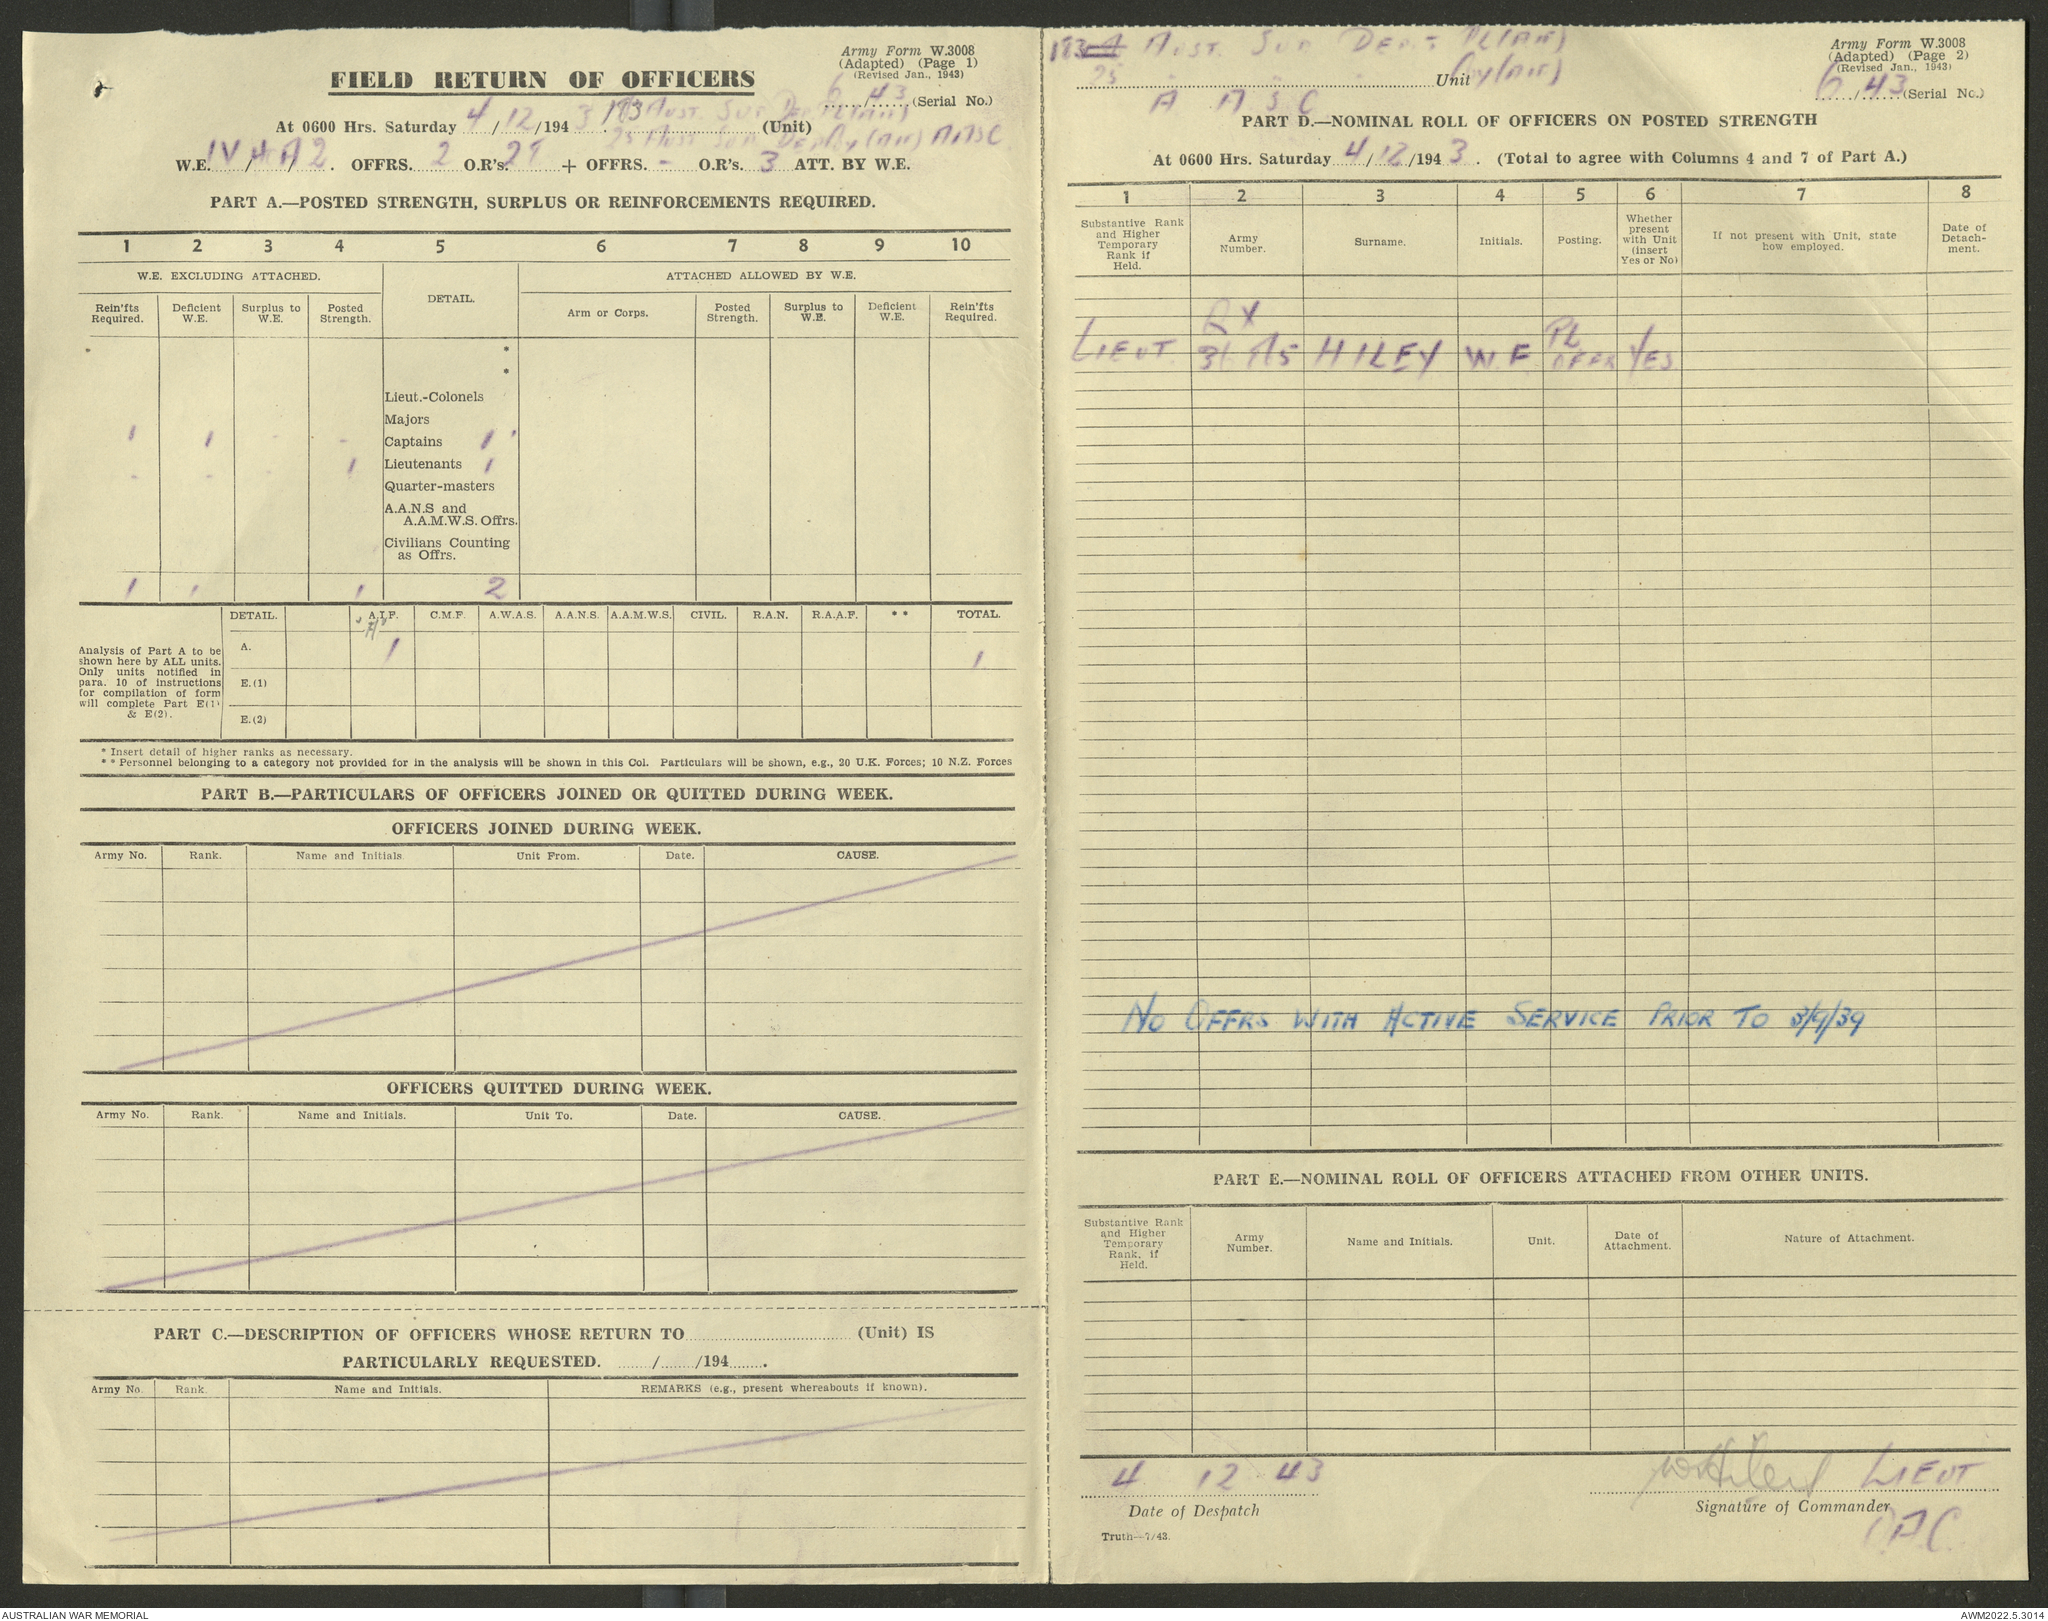 Army Form W.3008
(Adapted) (Page 1)
(Revised Jan., 1943)
FIELD RETURN OF OFFICERS
6/43 (Serial No.)
At 0600 Hrs. Saturday 4/12/1943. 183 Aust. Sup Depot Pl (AIF) (Unit)
25 Aust Sup Dep Coy (AIF) AASC
W.E. IV/4A/2. OFFRS. 2 O.R's. + OFFRS. - O.R's. 3 ATT. BY W.E.
PART A.—POSTED STRENGTH, SURPLUS OR REINFORCEMENTS REQUIRED.
1 2 3 4 5 6 7 8 9 10
W.E. EXCLUDING ATTACHED. DETAIL. ATTACHED ALLOWED BY W.E.
Rein'fts Required. Deficient W.E. Surplus to W.E. Posted Strength. Arm or Corps. Posted Strength. Surplus to W.E. Deficient W.E. Rein'fts Required.
*
*
Lieut.-Colonels
Majors
1 1 - - Captains 1
- - - 1 Lieutenants 1
Quarter-masters
A.A.N.S and
A.A.M.W.S. Offrs.
Civilians Counting
as Offrs.
1 1 1 2
DETAIL. A.I.F. C.M.F. A.W.A.S. A.A.N.S. A.A.M.W.S. CIVIL. R.A.N. R.A.A.F. * * TOTAL.
A. 1 1
Analysis of Part A to be
shown here by ALL units.
Only units notified in
para. 10 of instructions
for compilation of form
will complete Part E(1)
& E(2).
E.(1)
E.(2)
* Insert detail of higher ranks as necessary.
* * Personnel belonging to a category not provided for in the analysis will be shown in this Col. Particulars will be shown, e.g., 20 U.K. Forces; 10 N.Z. Forces
PART B.—PARTICULARS OF OFFICERS JOINED OR QUITTED DURING WEEK.
OFFICERS JOINED DURING WEEK.
Army No. Rank. Name and Initials. Unit From. Date. CAUSE.
OFFICERS QUITTED DURING WEEK.
Army No. Rank. Name and Initials. Unit To. Date. CAUSE.
PART C.—DESCRIPTION OF OFFICERS WHOSE RETURN TO (Unit) IS
PARTICULARLY REQUESTED. / /194 .
Army No. Rank. Name and Initials. REMARKS (e.g., present whereabouts if known).
183 Aust. Sup Depot Pl (AIF)
25 " " " Coy (AIF) Unit
A A S C
Army Form W.3008
(Adapted) (Page 2)
(Revised Jan., 1943)
6/43 (Serial No.)
PART D.—NOMINAL ROLL OF OFFICERS ON POSTED STRENGTH
At 0600 Hrs. Saturday 4/12/1943. (Total to agree with Columns 4 and 7 of Part A.)
1 2 3 4 5 6 7 8
Substantive Rank and Higher Temporary Rank if Held. Army Number. Surname. Initials. Posting. Whether present with Unit (insert Yes or No) If not present with Unit, state how employed. Date of Detachment.
LIEUT HILEY W.F PL OFFR YES
NO OFFRS WITH ACTIVE SERVICE PRIOR TO 3/9/39
PART E.—NOMINAL ROLL OF OFFICERS ATTACHED FROM OTHER UNITS.
Substantive Rank and Higher Temporary Rank, if Held. Army Number. Name and Initials. Unit. Date of Attachment. Nature of Attachment.
4 12 43
Date of Despatch
WF Hiley LIEUT
Signature of Commander
O.A.C.
Truth—7/43.
AUSTRALIAN WAR MEMORIAL
AWM2022.5.3014